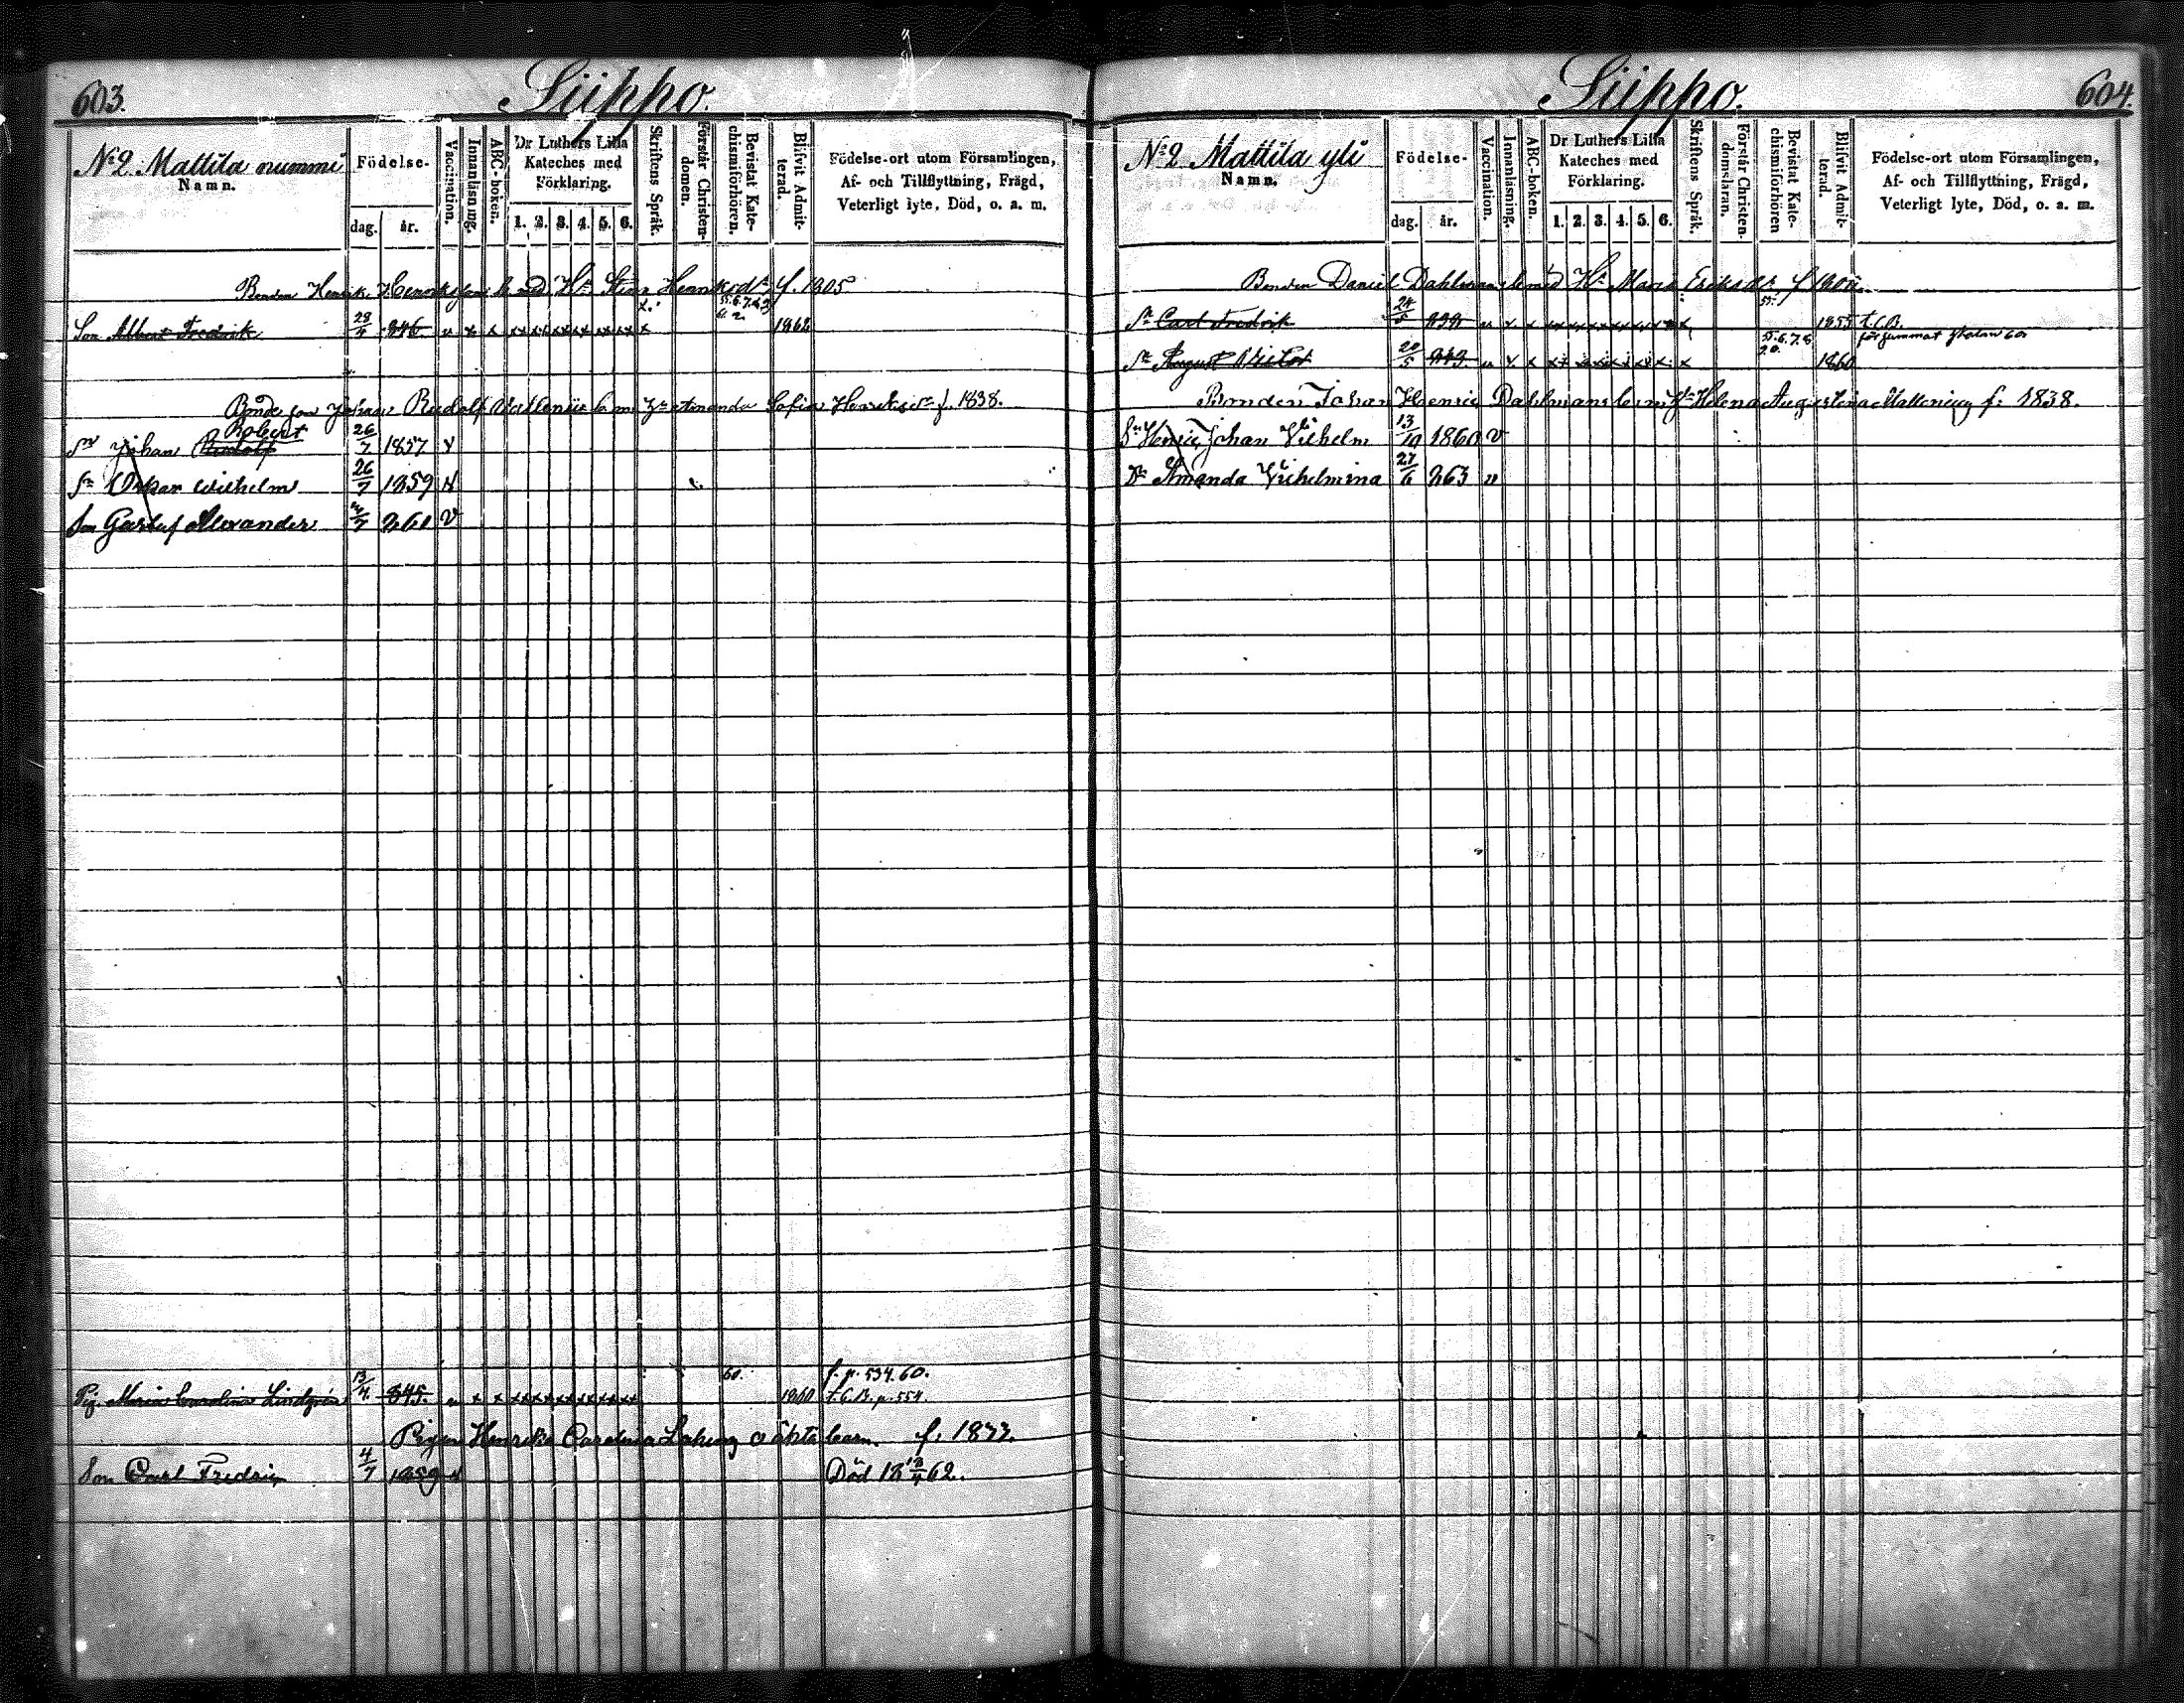 603. Siippo.
No 2 Mattila nummi
Namn.
Födelse-
dag. år.
Vaccination.
Innanläsning.
ABC-boken.
Dr Luthers Lilla
Kateches med
Förklaring.
1. 2. 3. 4. 5. 6.
Skriftens Språk.
Förstår Christen-
domen.
Bevistat Kate-
chismiförhören.
Blifvit Admit-
terad.
Födelse-ort utom Församlingen,
Af- och Tillflyttning, Frägd,
Veterligt lyte, Död, o. a. m.
Bonden Henrik Henriksson b. med H:u Stina Henriksdr f. 1805
Son Albert Fredrik 846 x x x x x x x x 1862
Bondeson Johan Rudolf Amanda Sofia f. 1838.
Robert
Sn Johan Rudolf 26/7 1857 v
Sn Oskar Wilhelm 26/7 1859 v
Son Gustaf Alexander 861 v
60. f. p. 534. 60.
Pig. Maria Carolina Lindgrén 13/4 845. x x x x x x x x 1860 t. C. B. p. 554.
Pigan Henrika Carolina oäkta barn. f. 1833.
Son Carl Fredric 4/7 1859 Död 62.
604.
Siippo.
No 2 Mattila yli
Namn.
Födelse-
dag. år.
Vaccination.
Innanläsning.
ABC-boken.
Dr Luthers Lilla
Kateches med
Förklaring.
1. 2. 3. 4. 5. 6.
Skriftens Språk.
Förstår Christen-
domsläran.
Bevistat Kate-
chismiförhören
Blifvit Admit-
terad.
Födelse-ort utom Församlingen,
Af- och Tillflyttning, Frägd,
Veterligt lyte, Död, o. a. m.
Bonden Daniel Dahlman b med H:u Maria Eriksdr f
Sn Carl Fredrik 24/5 x x x x x x x x 1855 t. C. B.
försummat 60
Sn August x x x x x x x x 1860
Bonden Johan Henric Dahlmans b m H:u Helena Augustina f: 1838.
Sn Henric Johan Vilhelm 13/10 1860 v
Dr Amanda Vilhelmina 27/6 863 "